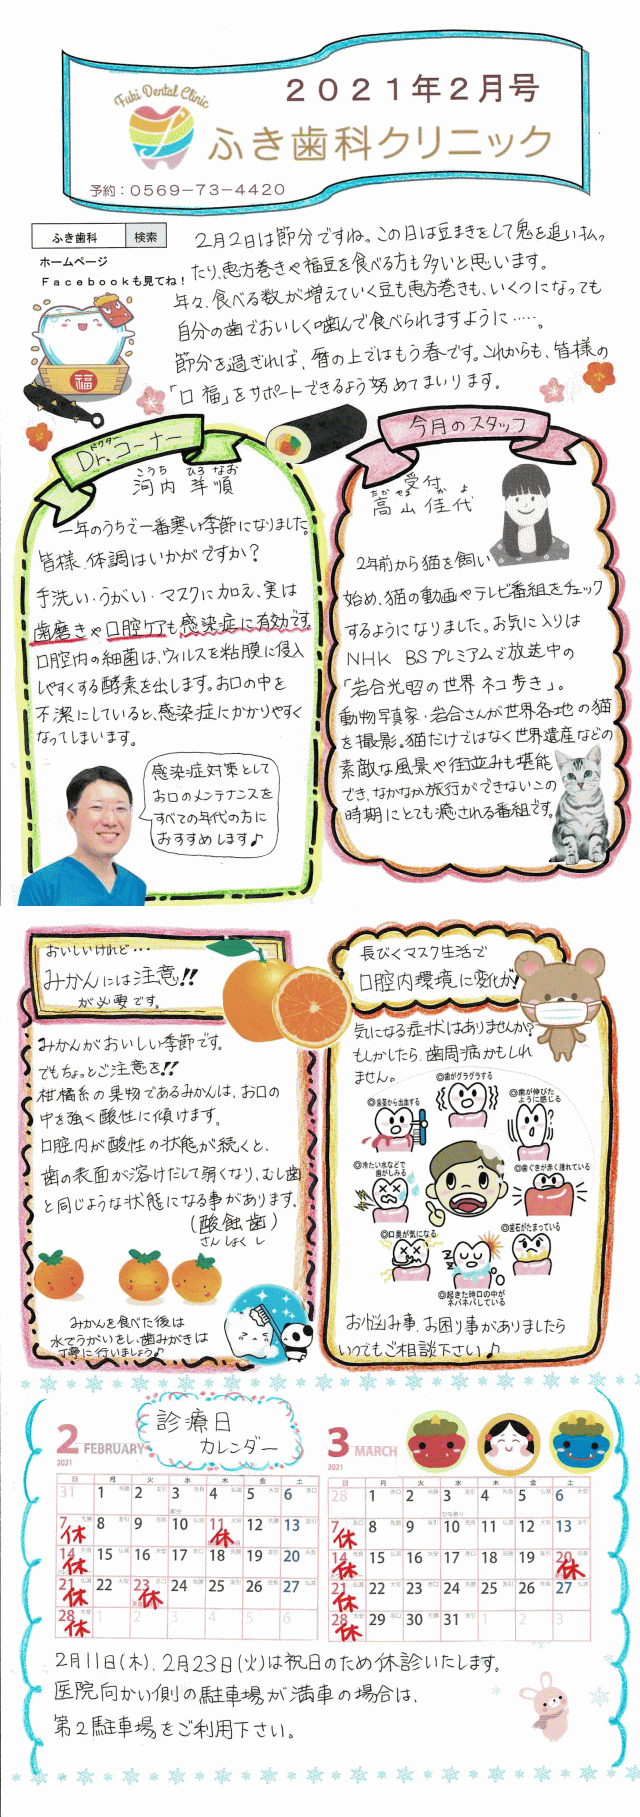 Fuki Dental Clinic
2021年2月号
ふき歯科クリニック
予約：0569-73-4420
ふき歯科 検索
ホームページ
Facebookも見てね！
2月2日は節分ですね。この日は豆まきをして鬼を追い払っ
たり、恵方巻きや福豆を食べる方も多いと思います。
年々、食べる数が増えていく豆も恵方巻きも、いくつになっても
自分の歯でおいしく噛んで食べられますように‥‥‥。
節分を過ぎれば、暦の上ではもう春です。これからも、皆様の
「口福」をサポートできるよう努めてまいります。
福
ドクター
Dr.コーナー
こうち ひろ なお
河内 洋順
一年のうちで一番寒い季節になりました。
皆様、体調はいかがですか？
手洗い・うがい・マスクに加え、実は
歯磨きや口腔ケアも感染症に有効です。
口腔内の細菌は、ウィルスを粘膜に侵入
しやすくする酵素を出します。お口の中を
不潔にしていると、感染症にかかりやすく
なってしまいます。
感染症対策として
お口のメンテナンスを
すべての年代の方に
おすすめします♪
今月のスタッフ
受付
たか やま か よ
高山 佳代
2年前から猫を飼い
始め、猫の動画やテレビ番組をチェック
するようになりました。お気に入りは
NHK BSプレミアムで放送中の
「岩合光昭の世界ネコ歩き」。
動物写真家・岩合さんが世界各地の猫
を撮影。猫だけではなく世界遺産などの
素敵な風景や街並みも堪能
でき、なかなか旅行ができないこの
時期にとても癒される番組です。
おいしいけれど・・・
みかんには注意!!
が必要です。
みかんがおいしい季節です。
でもちょっとご注意を!!
柑橘系の果物であるみかんは、お口の
中を強く酸性に傾けます。
口腔内が酸性の状態が続くと、
歯の表面が溶けだして弱くなり、むし歯
と同じような状態になる事があります。
(酸蝕歯)
さんしょくし
みかんを食べた後は
水でうがいをし、歯みがきは
丁寧に行いましょう♪
長びくマスク生活で
口腔内環境に変化が!
気になる症状はありませんか？
もしかしたら、歯周病かもしれ
ません。
◎歯がグラグラする
◎歯茎から出血する
◎歯が伸びた
ように感じる
◎冷たい水などで
歯がしみる
◎歯ぐきが赤く腫れている
◎口臭が気になる
◎歯石がたまっている
◎起きた時口の中が
ネバネバしている
お悩み事、お困り事がありましたら
いつでもご相談下さい♪
診療日
カレンダー
2 FEBRUARY
2021
日 月 火 水 木 金 土
31 1 2 3 4 5 6
7 休 8 9 10 11 休 12 13
14 休 15 16 17 18 19 20
21 休 22 23 休 24 25 26 27
28 休 1 2 3 4 5 6
3 MARCH
2021
日 月 火 水 木 金 土
28 1 2 3 4 5 6
7 休 8 9 10 11 12 13
14 休 15 16 17 18 19 20 休
21 休 22 23 24 25 26 27
28 休 29 30 31 1 2 3
2月11日(木)、2月23日(火)は祝日のため休診いたします。
医院向かい側の駐車場が満車の場合は、
第2駐車場をご利用下さい。